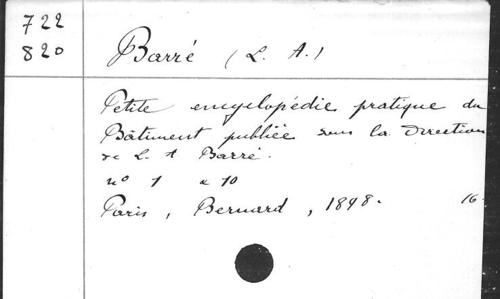 722
820
Barré (L. A.)
Petite encyclopédie pratique du
Bâtiment publiée sous la Direction
de L. A Barré.
nº 1 à 10
Paris, Bernard, 1898. 16